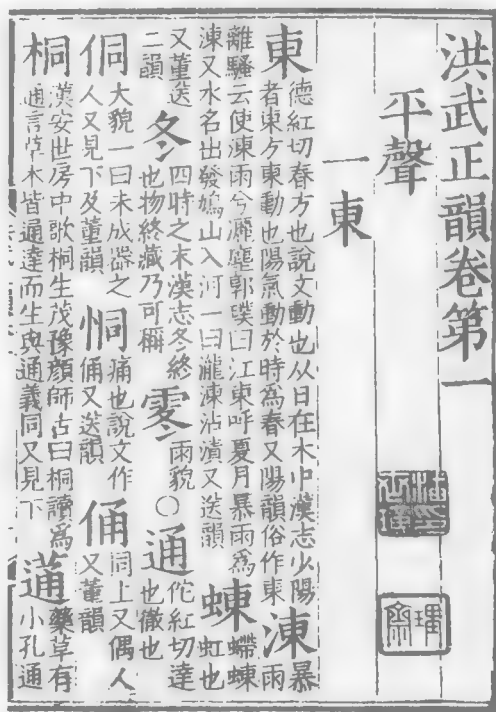 洪武正韻卷第一
平聲
一東
東德紅切春方也說文動也从日在木中漢志少陽者東方東動也陽氣動於時為春又陽韻俗作東涷暴雨
離騷云使涷雨兮灑塵郭璞曰江東呼夏月暴雨為涷又水名出發鳩山入河一曰瀧涷沾漬又送韻蝀螮蝀虹也
又董送二韻冬四時之末漢志冬終也物終藏乃可稱𩂓雨貌○通佗紅切達也徹也
侗大貌一曰未成器之人又見下及董韻恫痛也說文作俑又送韻俑同上又偶人又董韻
桐漢安世房中歌桐生茂豫顏師古曰桐讀為通言草木皆通達而生與通義同又見下蓪藥草有小孔通